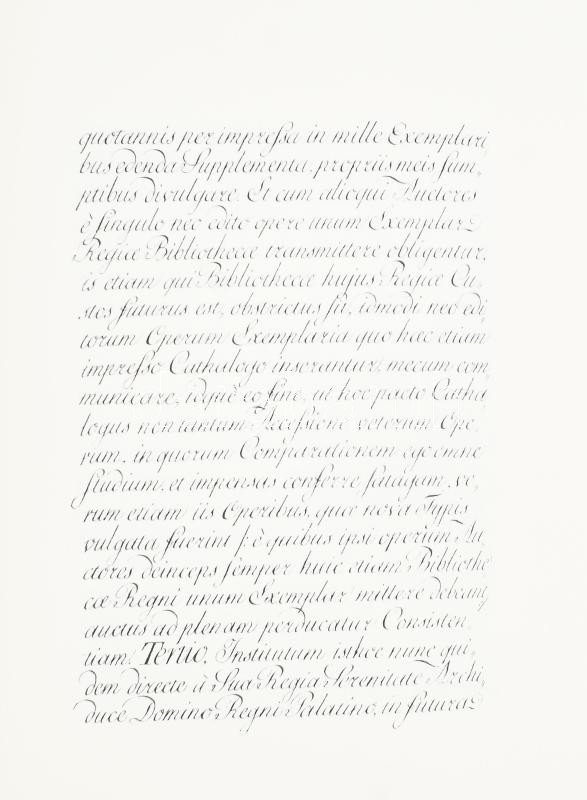 quotannis per impressa in mille Exemplari,
bus edenda Supplementa, propriis meis sum„
ptibus divulgare. Et cum alioqui Auctores
è singulo neo edito opere unum Exemplar
Regiæ Bibliothecæ transmittere obligentur,
is etiam qui Bibliothecæ hujus Regiæ Cu„
stos futurus est, obstrictus sit, idmodi neo edi
torum Operum Exemplaria quo hæc etiam
impresso Cathalogo inserantur, mecum com„
municare, idquè eo fine, ut hoc pacto Catha
logus non tantum Accessione veterum Ope„
rum, in quorum Comparationem ego omne
studium, et impensas conferre satagam, ve„
rum etiam iis Operibus, quæ nova Typis
vulgata fuerint /: è quibus ipsi operum Au„
ctores deinceps semper huic etiam Bibliothe„
cæ Regni unum Exemplar mittere debeant,
auctus ad plenam perducatur Consisten„
tiam. Tertio. Institutum isthoc nunc qui„
dem directe à Sua Regia Serenitate Archi„
duce Domino Regni Palatino, in futura